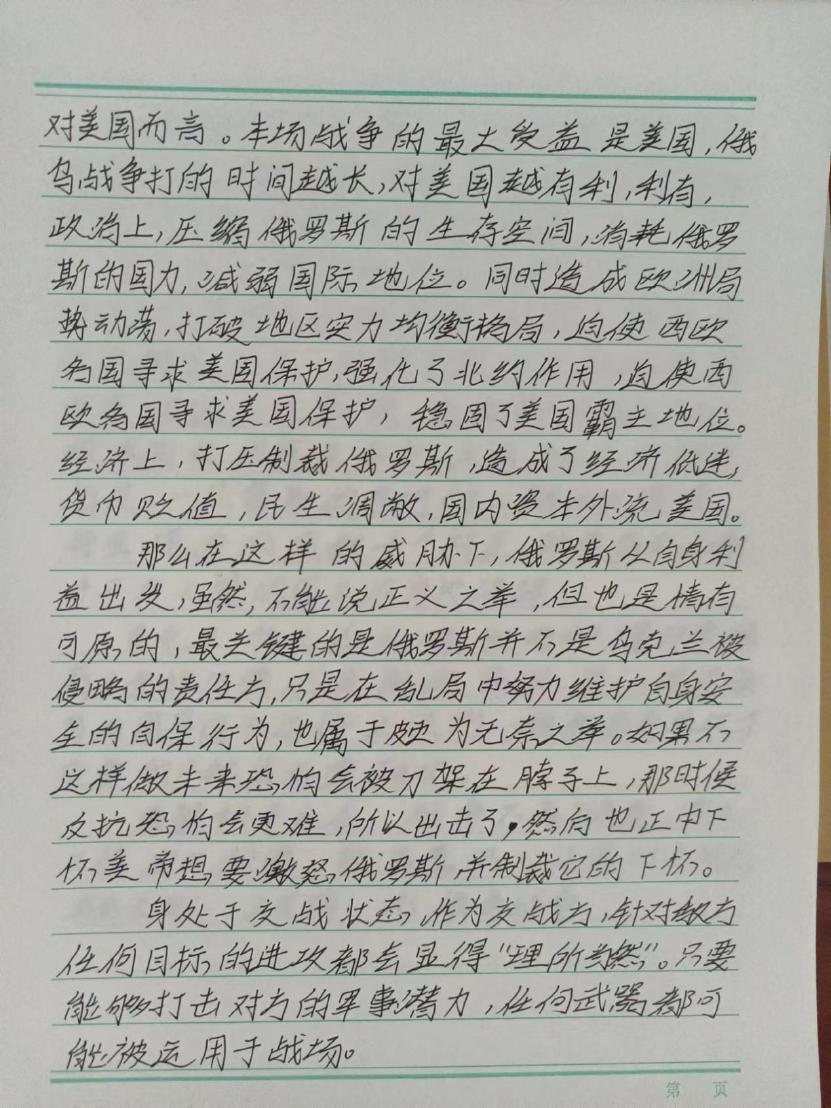 对美国而言。本场战争的最大受益是美国，俄
乌战争打的时间越长，对美国越有利，利有，
政治上，压缩俄罗斯的生存空间，消耗俄罗
斯的国力，减弱国际地位。同时造成欧洲局
势动荡，打破地区实力均衡格局，迫使西欧
各国寻求美国保护，强化了北约作用，迫使西
欧各国寻求美国保护，稳固了美国霸主地位。
经济上，打压制裁俄罗斯，造成了经济低迷，
货币贬值，民生凋敝，国内资本外流美国。
那么在这样的威胁下，俄罗斯从自身利
益出发，虽然，不能说正义之举，但也是情有
可原的，最关键的是俄罗斯并不是乌克兰被
侵略的责任方，只是在乱局中努力维护自身安
全的自保行为，也属于颇为无奈之举。如果不
这样做未来恐怕会被刀架在脖子上，那时候
反抗恐怕会更难，所以出击了，然后也正中下
怀美帝想要激怒俄罗斯并制裁它的下怀。
身处于交战状态，作为交战方，针对敌方
任何目标的进攻都会显得“理所当然”。只要
能够打击对方的军事潜力，任何武器都可
能被运用于战场。
第 页